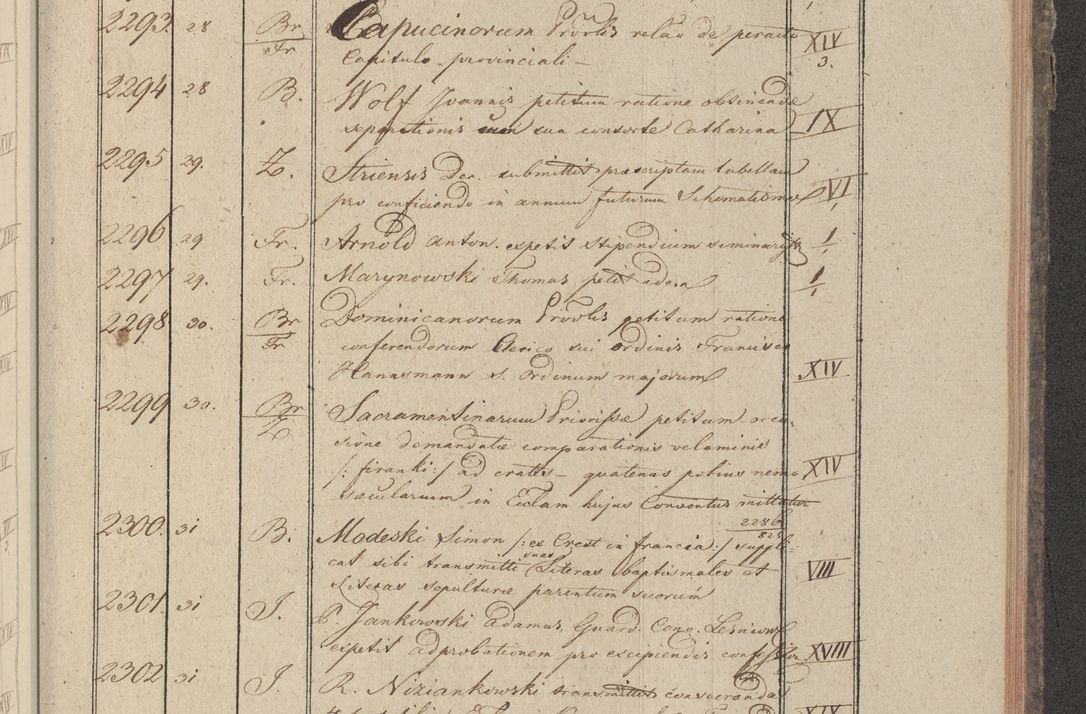 2293. 28 Br/Fr Capucinorum Provlis relao de peracto XIV
Capitulo provinciali – 3.
2294 28 B. Wolf Joannis petitum ratione obtinendae
separationis cum sua consorte Catharina IX
2295 29. Z. Striensis Dec. submittit praescriptam tabellam
pro conficiendo in annum futurum Schematismo VI
2296 29 Fr. Arnold Anton. expetit stipendium seminarist 1/1
2297 29. Fr. Marynowski Thomas petit idem 1/1
2298 30. Br/Fr Dominicanorum Provlis petitum ratione
conferendorum Clerico sui ordinis Francisco
Hannsmann s. Ordinum majorum XIV
2299 30. Br/Z Sacramentinarum Priorissae petitum occa-
sione demandatae comparationis velaminis
/: firanki :/ ad crates – quatenus potius nemo XIV
saecularium in Ecclam hujus Conventus mittatur
2300. 31 B. Modeski Simon /: ex Crest in francia :/ suppli- 2286/825
cat sibi transmitti suas Literas baptismales et VIII
Literas sepulturae parentum suorum
2301 31 J. P. Jankowski Adamus Guard. Conv. Lesniow
expetit adprobationem pro excipiendis confession XVIII
2302 31 J. R. Niziankowski transmittit consecrandas